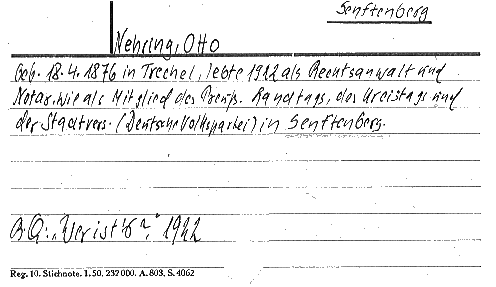 Senftenberg
Nehring, Otto
Geb. 18.4.1876 in Trechel, lebte 1922 als Rechtsanwalt und
Notar, wie als Mitglied des Preuß. Landtags, des Kreistags und
der Stadtvers. (Deutsche Volkspartei) in Senftenberg.
B.Q: "Wer ist's?", 1922
Reg. 10. Stichnote. 1. 50. 232 000. A. 803, S. 4062